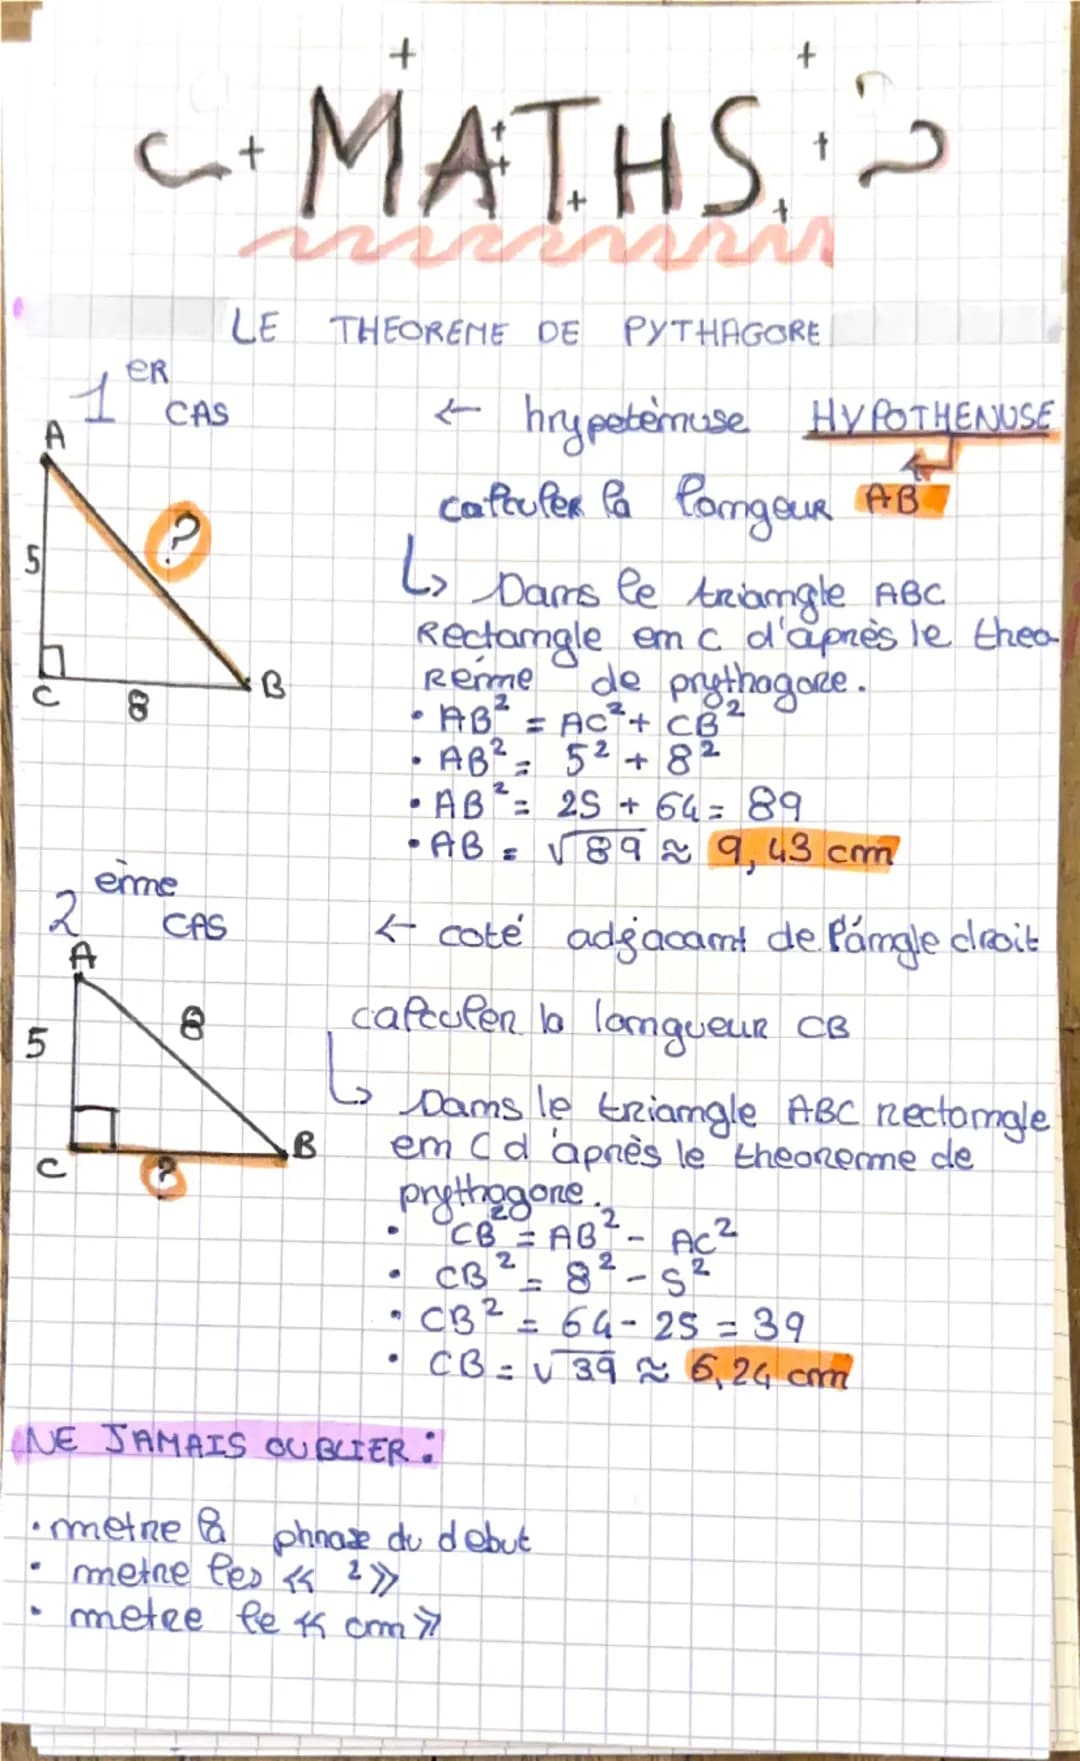 MATHS
LE THEOREME DE PYTHAGORE
1 ER CAS
← hrypeténuse HYPOTHENUSE
calculer la longeur AB
A
?
5
C
8
B
↳ Dans le triangle ABC
Rectangle en C d'après le theo
Reme de prythagore.
• AB² = AC² + CB²
• AB² = 5² + 8²
• AB² = 25 + 64 = 89
• AB = √89 ≈ 9,43 cm
2 eme CAS
← coté adjacant de l'angle droit
calculer la longueur CB
A
8
5
C
?
B
↳ Dans le triangle ABC rectangle
en C d'après le theoreme de
prythagore.
• CB² = AB² - AC²
• CB² = 8² - 5²
• CB² = 64 - 25 = 39
• CB = √39 ≈ 6,24 cm
NE JAMAIS OUBLIER :
• metre la phrase du debut
• metre les « ² »
• metre le « cm »